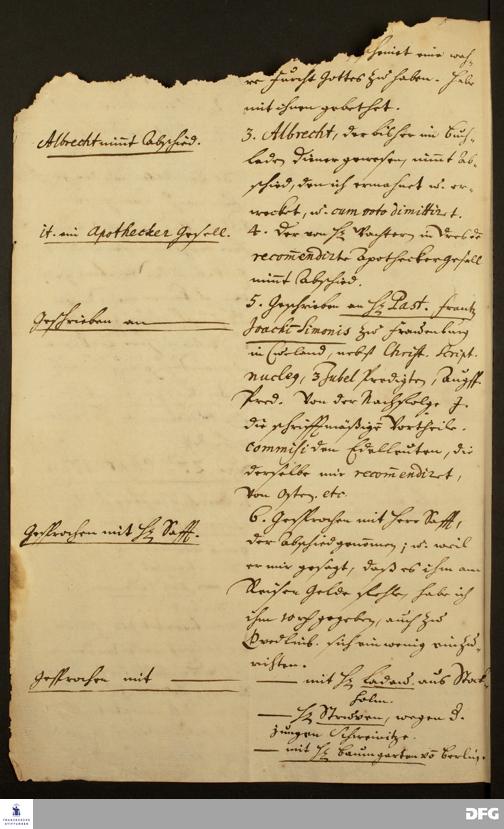 scheinet eine wah-
re Furcht Gottes zu haben. Habe
mit ihnen gebethet.
Albrecht nimmt Abschied.
3. Albrecht, der bißher im Buch-
laden Diener gewesen, nimmt Ab-
schied, den ich ermahnet u. er-
wecket, u. cum voto dimittiret.
it. ein Apothecker Gesell.
4. Der von H. Wachtern in Dresden
recommendirte Apothecker Gesell
nimmt Abschied.
Geschrieben an
5. Geschrieben an H. Past. Frantz
Joach. Simonis zu Frauenburg
in Curland, nebst Christ. Script.
nucleq, 3 Jubel Predigten, Augsp.
Pred. Von der Nachfolge J.
die schrifftmäßige Vortheile.
commisi den Edelleuten, die
derselbe mir recommendiret,
von Osten. etc.
Gesprochen mit H. Safft.
6. Gesprochen mit Herr Safft,
der Abschied genommen; u. weil
er mir gesagt, daß es ihm am
Reisen Gelde fehlen, habe ich
ihm gegeben, auch zu
Quedlinb. sich ein wenig einzu-
richten.
Gesprochen mit
— mit H. aus Stock-
holm.
— H. Struven, wegen
zungen
— mit H. Baumgarten von Berlin.
FRANCKESCHE STIFTUNGEN
DFG